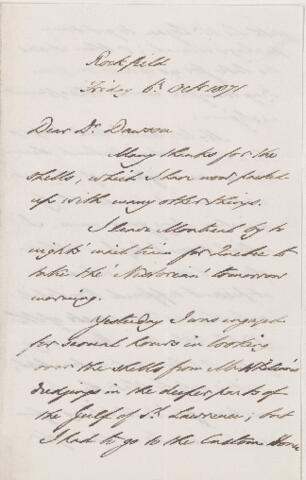 Rockfield
Friday 6th Octr 1871
Dear Dr. Dawson
Many thanks for the
shells, which I have now packed
up with many other things.
I leave Montreal by to
night's mail train for Quebec to
take the 'Nestorian' tomorrow
morning.
Yesterday I was engaged
for several hours in looking
over the shells from Mr. Whiteaves'
dredgings in the deeper parts of
the Gulf of St. Lawrence; but
I had to go to the Custom House